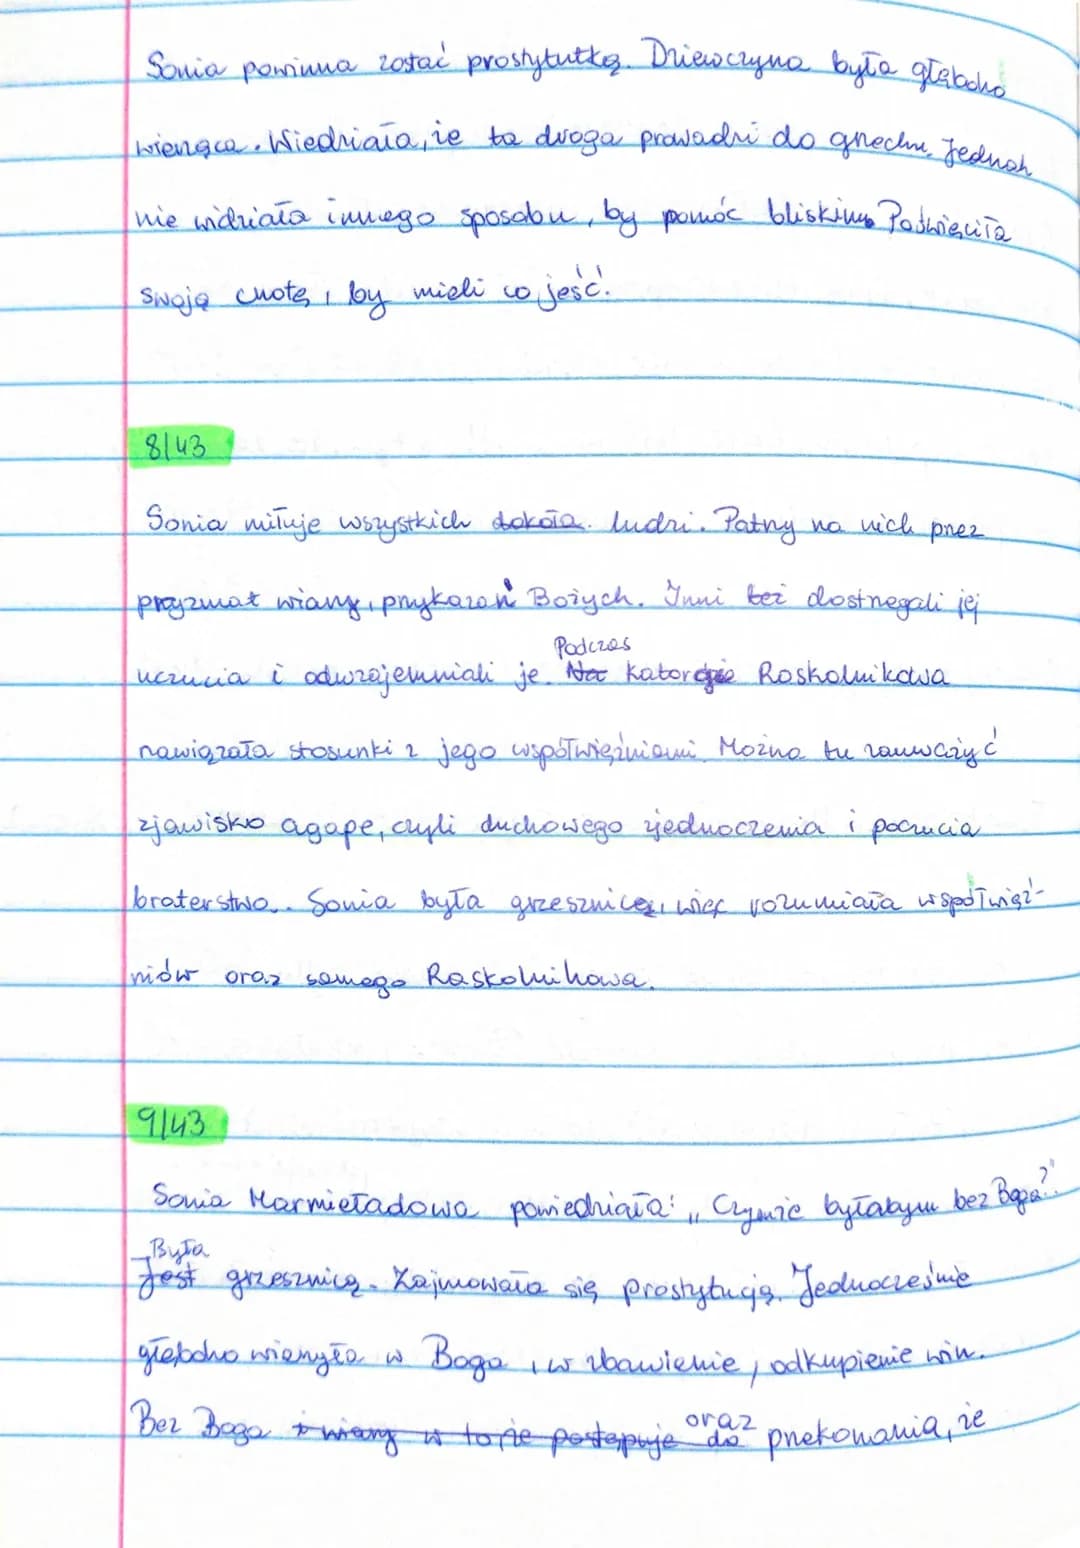 Sonia powinna zostać prostytutką. Dziewczyna była głęboko
wierząca. Wiedziała, że ta droga prowadzi do grzechu. Jednak
nie widziała innego sposobu, by pomóc bliskim. Poświęciła
swoją cnotę, by mieli co jeść.
8/43
Sonia miłuje wszystkich dokoła. ludzi. Patrzy na nich przez
pryzmat wiary, przykazań Bożych. Inni też dostrzegali jej
Podczas
uczucia i odwzajemniali je. Na katordze Raskolnikowa
nawiązała stosunki z jego współwięźniami. Można tu zauważyć
zjawisko agape, czyli duchowego zjednoczenia i poczucia
braterstwa. Sonia była grzesznicą, więc rozumiała współwięź-
niów oraz samego Raskolnikowa.
9/43
Sonia Marmieładowa powiedziała: „Czymże byłabym bez Boga?".
Była
Jest grzesznicą. Zajmowała się prostytucją. Jednocześnie
głęboko wierzyła w Boga, w zbawienie, odkupienie win.
oraz
Bez Boga i wiary w to że postępuje do przekonania, że